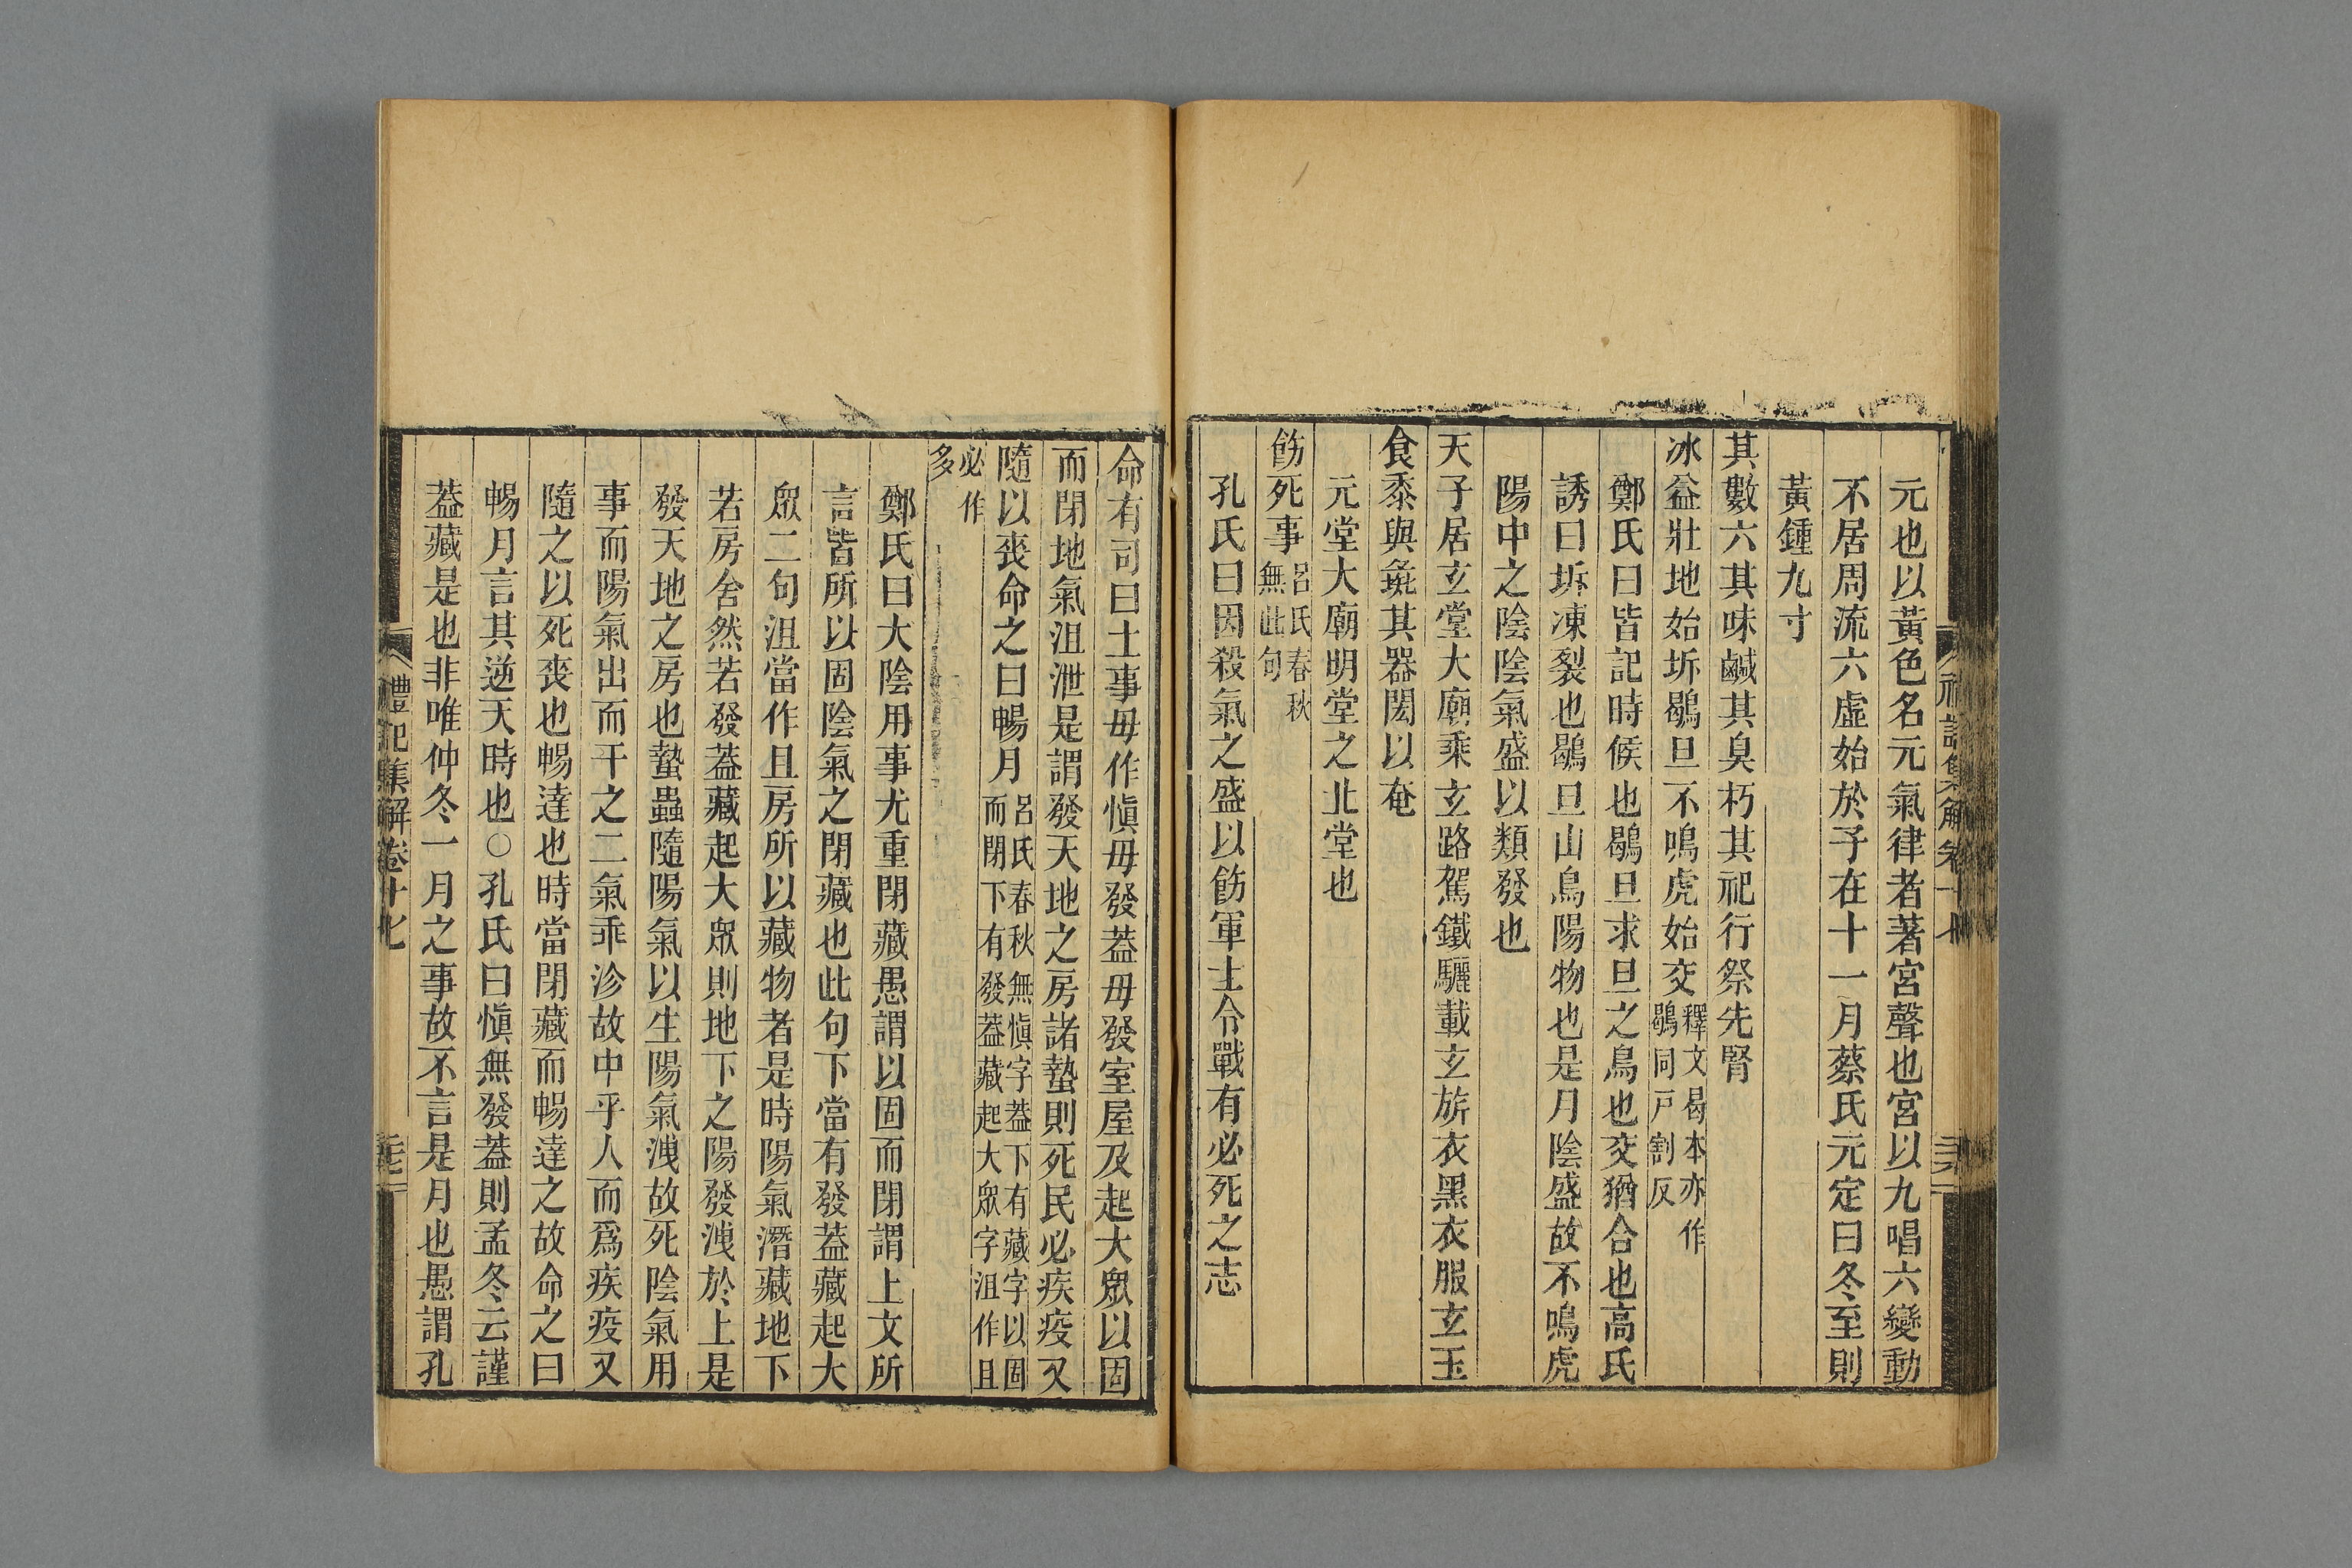 元也以黃色名元氣律者著宮聲也宮以九唱六變動
不居周流六虛始於子在十一月蔡氏元定曰冬至則
黃鍾九寸
其數六其味鹹其臭朽其祀行祭先腎
冰益壯地始坼鶡旦不鳴虎始交釋文曷本亦作鶡同戸割反
鄭氏曰皆記時候也鶡旦求旦之鳥也交猶合也高氏
誘曰坼凍裂也鶡旦山鳥陽物也是月陰盛故不鳴虎
陽中之陰陰氣盛以類發也
天子居玄堂大廟乘玄路駕鐵驪載玄旂衣黑衣服玄玉
食黍與彘其器閎以奄
元堂大廟明堂之北堂也
飭死事呂氏春秋無此句
孔氏曰因殺氣之盛以飭軍士令戰有必死之志
命有司曰土事毋作愼毋發葢毋發室屋及起大眾以固
而閉地氣沮泄是謂發天地之房諸蟄則死民必疾疫又
隨以喪命之曰暢月呂氏春秋無愼字葢下有藏字以固而閉下有發葢藏起大眾字沮作且
必作多
鄭氏曰大陰用事尤重閉藏愚謂以固而閉謂上文所
言皆所以固陰氣之閉藏也此句下當有發葢藏起大
眾二句沮當作且房所以藏物者是時陽氣潛藏地下
若房舍然若發葢藏起大眾則地下之陽發洩於上是
發天地之房也蟄蟲隨陽氣以生陽氣洩故死陰氣用
事而陽氣出而干之二氣乖沴故中乎人而爲疾疫又
隨之以死喪也暢達也時當閉藏而暢達之故命之曰
暢月言其逆天時也○孔氏曰愼無發葢則孟冬云謹
葢藏是也非唯仲冬一月之事故不言是月也愚謂孔
禮記集解卷十七